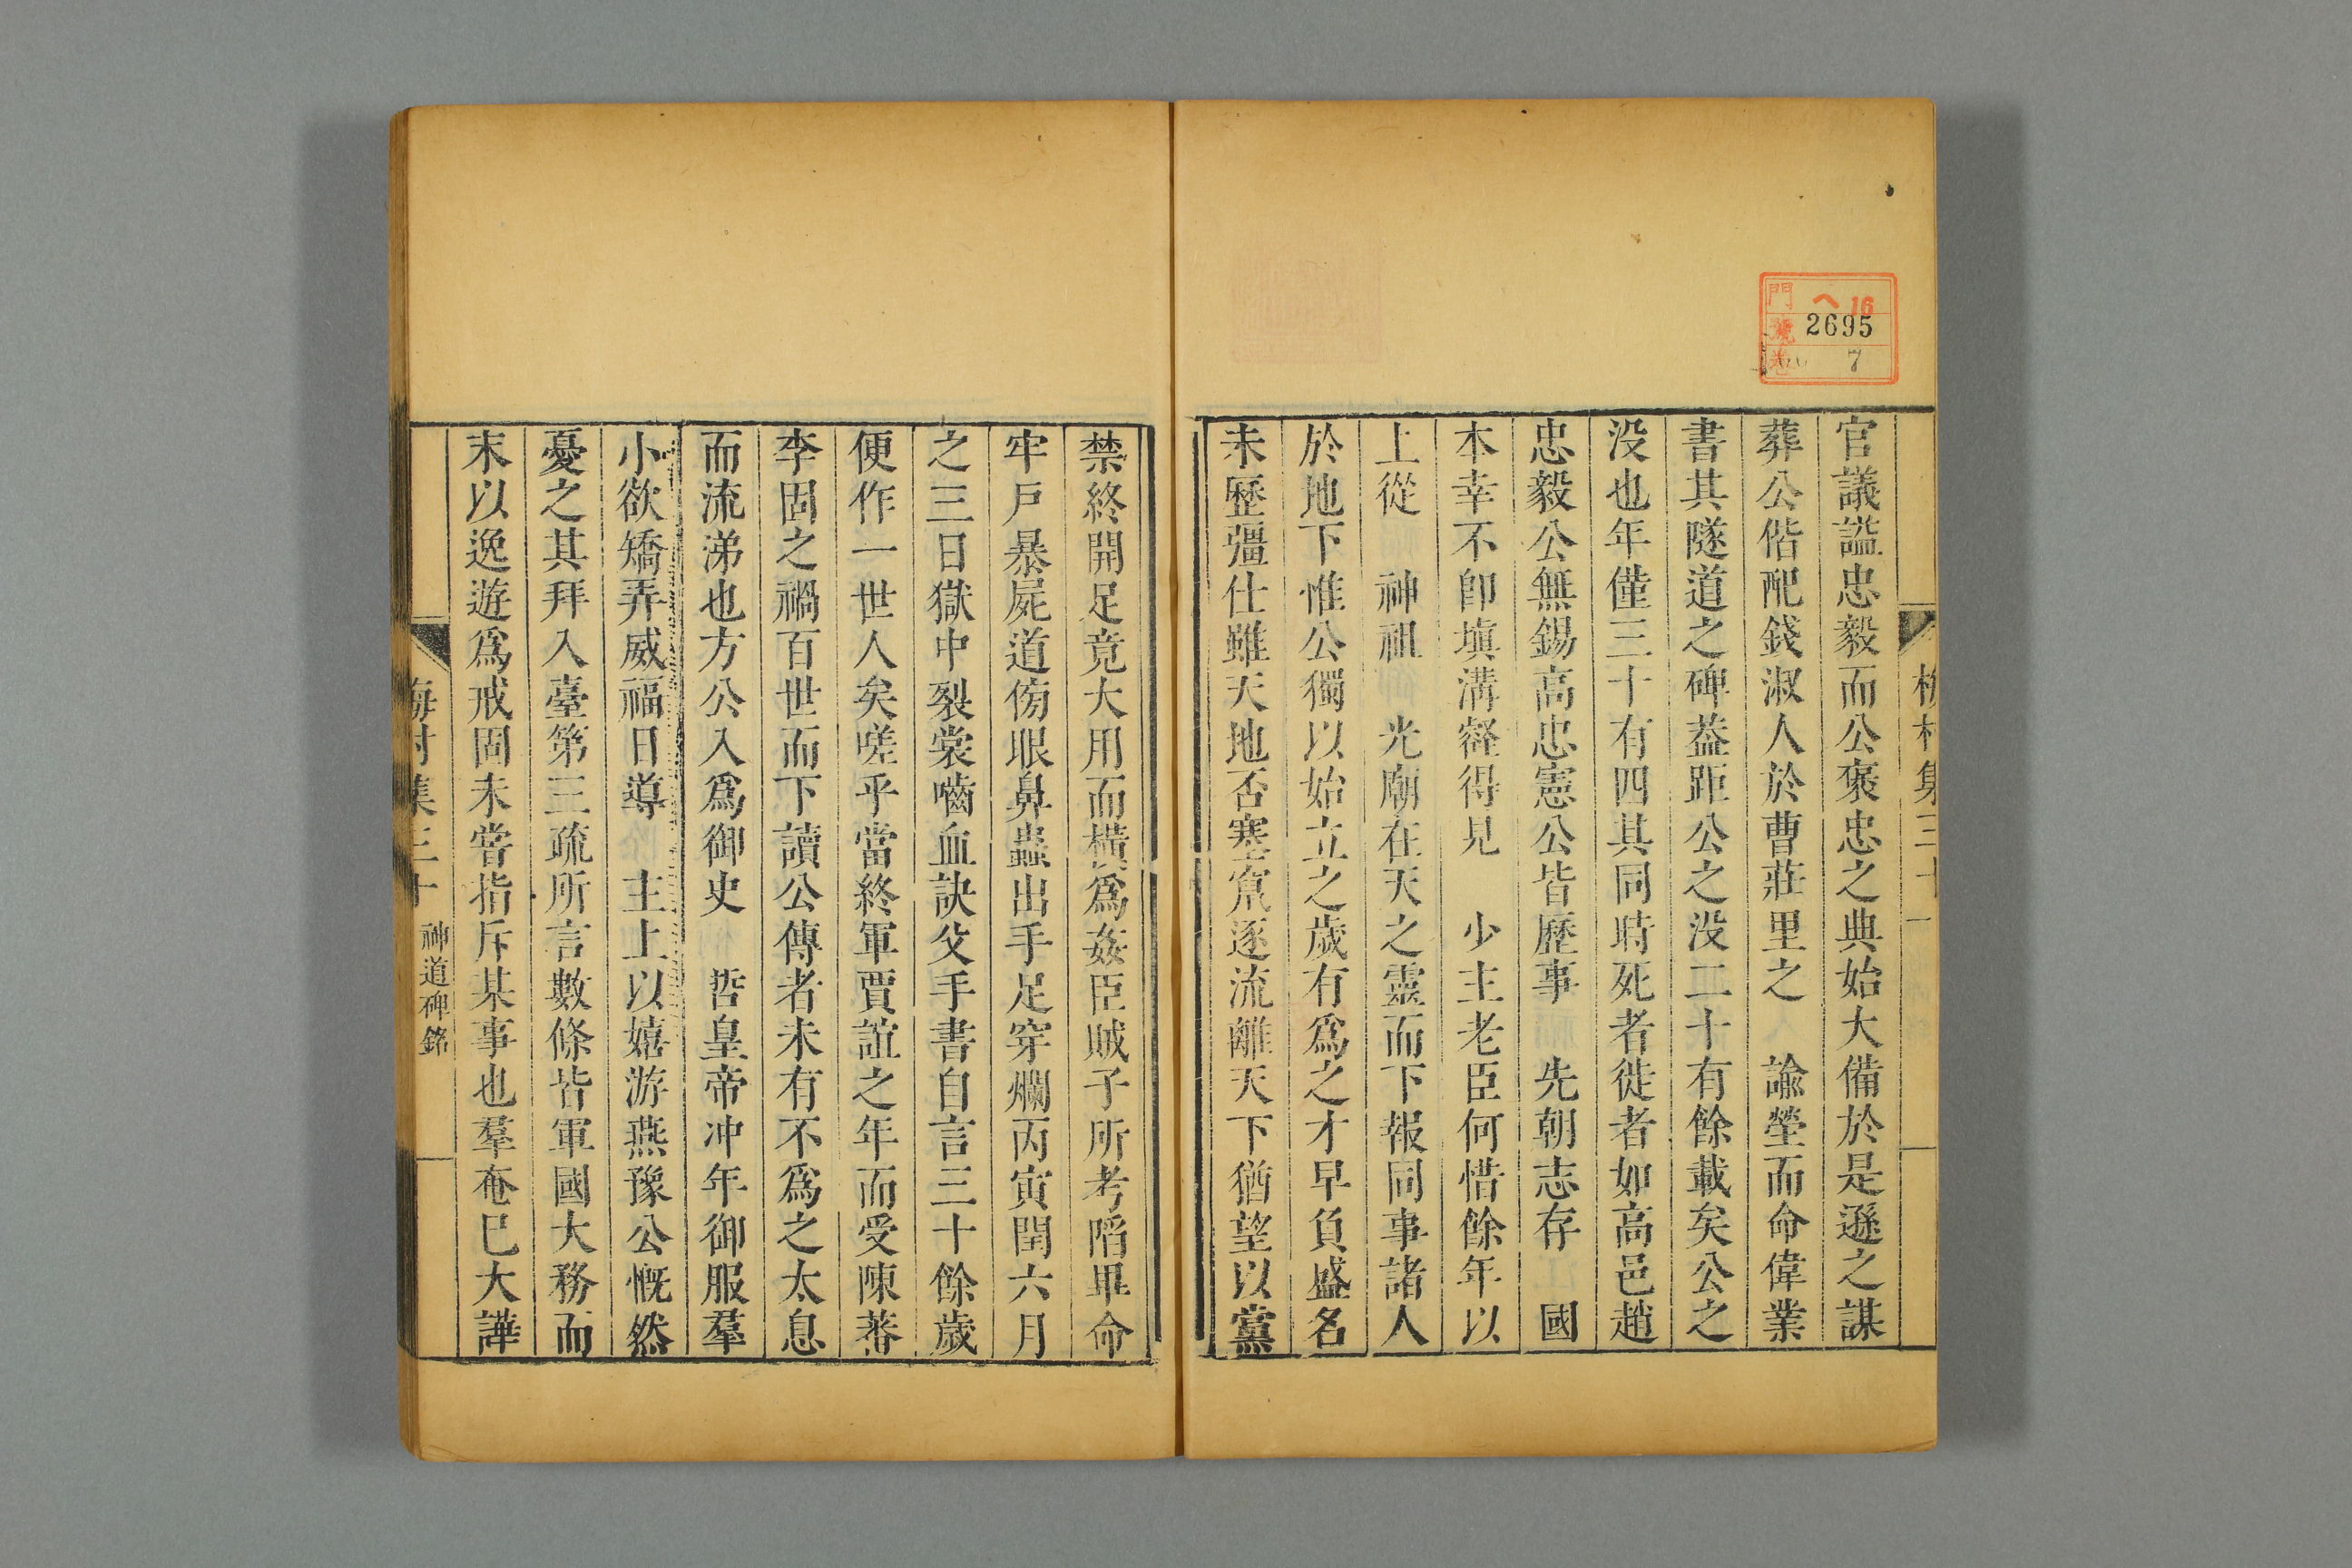 門 へ16
號 2695
卷 7
官議諡忠毅而公褒忠之典始大備於是遜之謀
葬公偕配錢淑人於曹莊里之 諭塋而命偉業
書其隧道之碑葢距公之没二十有餘載矣公之
没也年僅三十有四其同時死者徙者如高邑趙
忠毅公無錫高忠憲公皆歷事 先朝志存 國
本幸不卽填溝壑得見 少主老臣何惜餘年以
上從 神祖 光廟在天之靈而下報同事諸人
於地下惟公獨以始立之歲有爲之才早負盛名
未歷彊仕雖天地否塞竄逐流離天下猶望以黨
禁終開足竟大用而橫爲姦臣賊子所考䧟畢命
牢戸暴屍道傍眼鼻蟲出手足穿爛丙寅閏六月
之三日獄中裂裳嚙血訣父手書自言三十餘歲
便作一世人矣嗟乎當終軍賈誼之年而受陳蕃
李固之禍百世而下讀公傳者未有不爲之太息
而流涕也方公入爲御史 哲皇帝冲年御服羣
小欲矯弄威福日導 主上以嬉游燕豫公慨然
憂之其拜入臺第三疏所言數條皆軍國大務而
末以逸遊爲戒固未嘗指斥某事也羣奄巳大譁
梅村集三十 神道碑銘